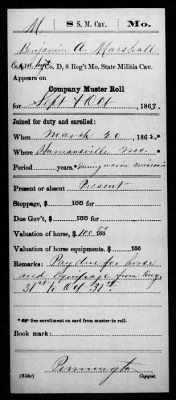 M | 8 S. M. Cav. | Mo.
Benjamin A. Marshall
Co. D, 8 Reg't Mo. State Militia Cav.
Appears on
Company Muster Roll
for Sept & Oct, 1863.
Joined for duty and enrolled:
When March 20, 1862.
Where Humansville Mo.
Period during war
Present or absent Present
Stoppage, $ 100 for
Due Gov't, $ 100 for
Valuation of horse, $ 100
Valuation of horse equipments, $ 100
Remarks: Pay due for horse
and Equipage from Aug.
31st to Oct 31st
* See enrollment on card from muster-in roll.
Book mark:
Pennington
Copyist.